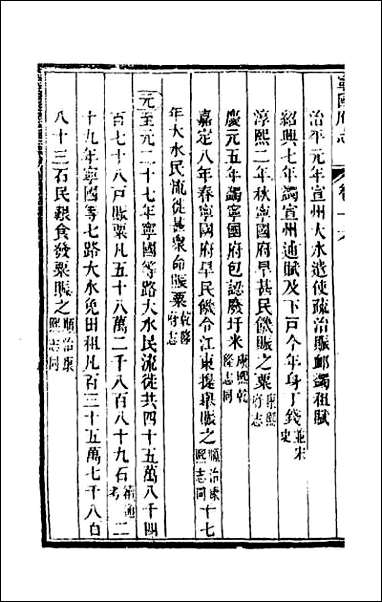 寧國府志 卷十六
治平元年宣州大水遣使疏治賑邮蠲租賦
紹興七年蠲宣州逋賦及下戸今年身丁錢並宋史
淳熙二年秋寧國府旱甚民饑賑之粟康熙府志
慶元五年蠲寧國府包認廢圩米康熙乾隆志同
嘉定八年春寧國府旱民饑令江東提舉賑之順治康熙志同十七
年大水民流徙甚衆命賑粟乾隆府志
元至元二十七年寧國等路大水民流徙共四十五萬八千四
百七十八戸賑粟凡五十八萬二千八百八十九石續通考二
十九年寧國等七路大水免田租凡百三十五萬七千八百
八十三石民艱食發粟賑之順治康熙志同